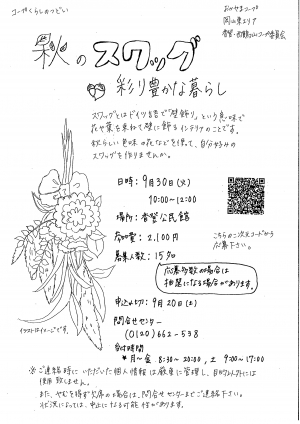 コープくらしのつどい
おかやまコープ
岡山東エリア
香登・西鶴山コープ委員会
秋のスワッグ
彩り豊かな暮らし
スワッグとはドイツ語で「壁飾り」という意味で
花や葉を束ねて壁に飾るインテリアのことです。
秋らしい色味の花などを使って、自分好みの
スワッグを作りませんか。
日時：9月30日(火)
10:00〜12:00
場所：香登公民館
参加費：2,100円
募集人数：15名
こちらの二次元コードから
応募下さい。
応募多数の場合は
抽選になる場合があります。
申込〆切：9月20日(土)
イラストはイメージです。
問合せセンター
(0120)662-538
受付時間
*月〜金 8:30〜20:00, 土 9:00〜17:00
※ご連絡時にいただいた個人情報は厳重に管理し、目的以外には
使用致しません。
また、やむを得ず欠席の場合は、問合せセンターまでご連絡下さい。
状況によっては、中止になる可能性があります。